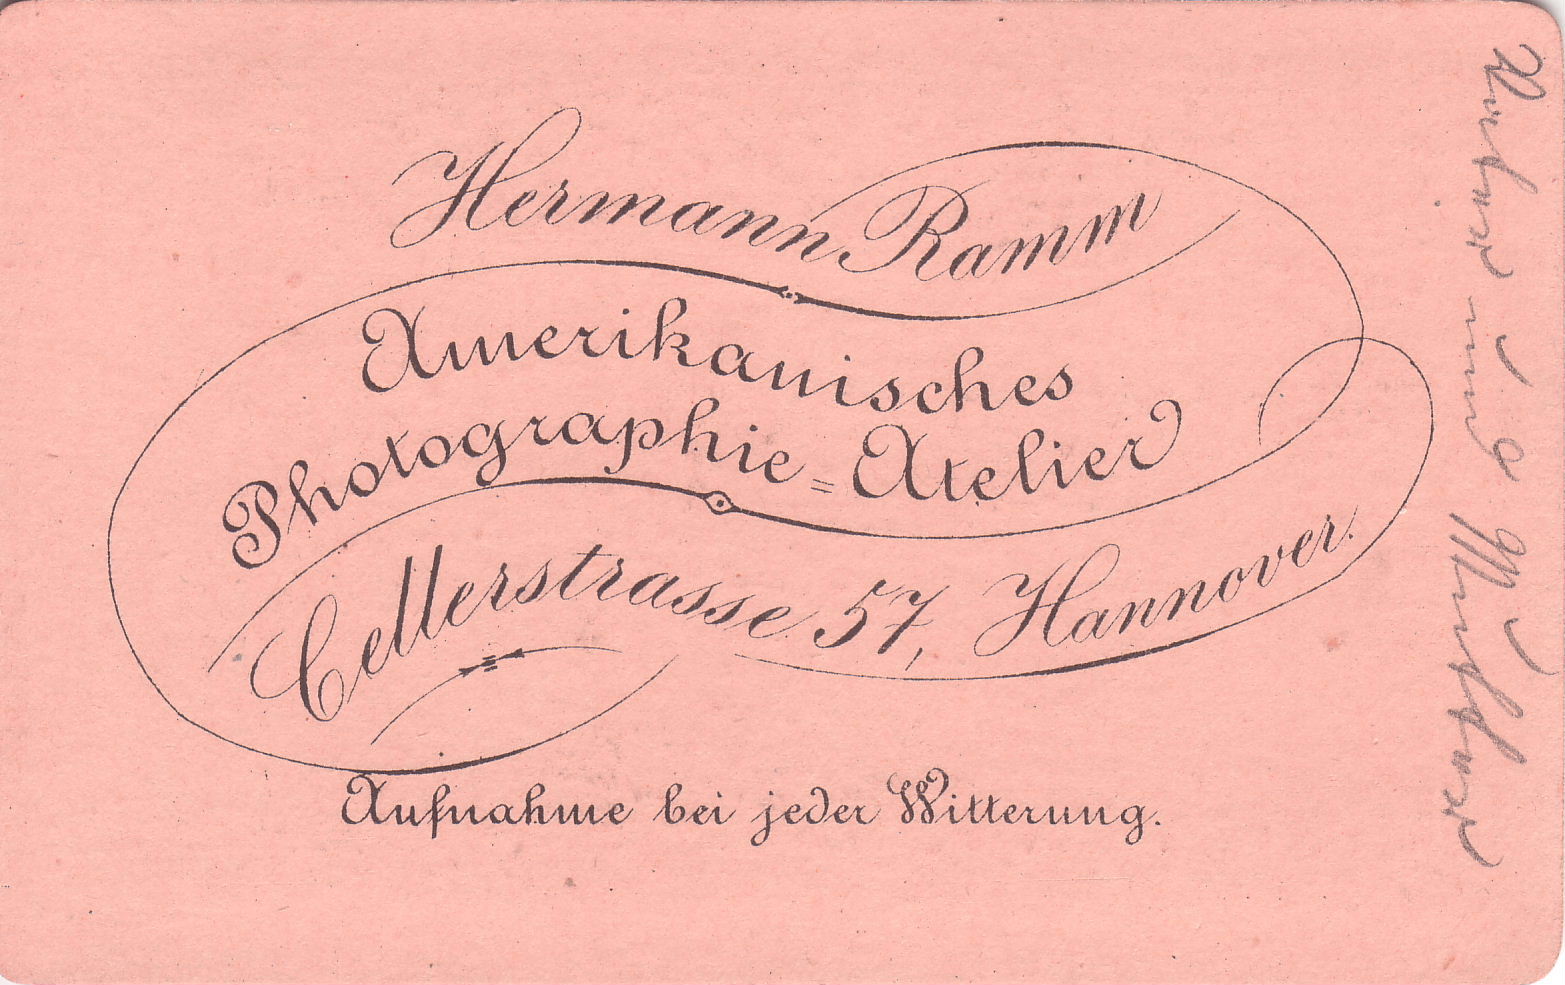 Hermann Ramm
Amerikanisches
Photographie=Atelier
Cellerstrasse 57, Hannover.
Aufnahme bei jeder Witterung.